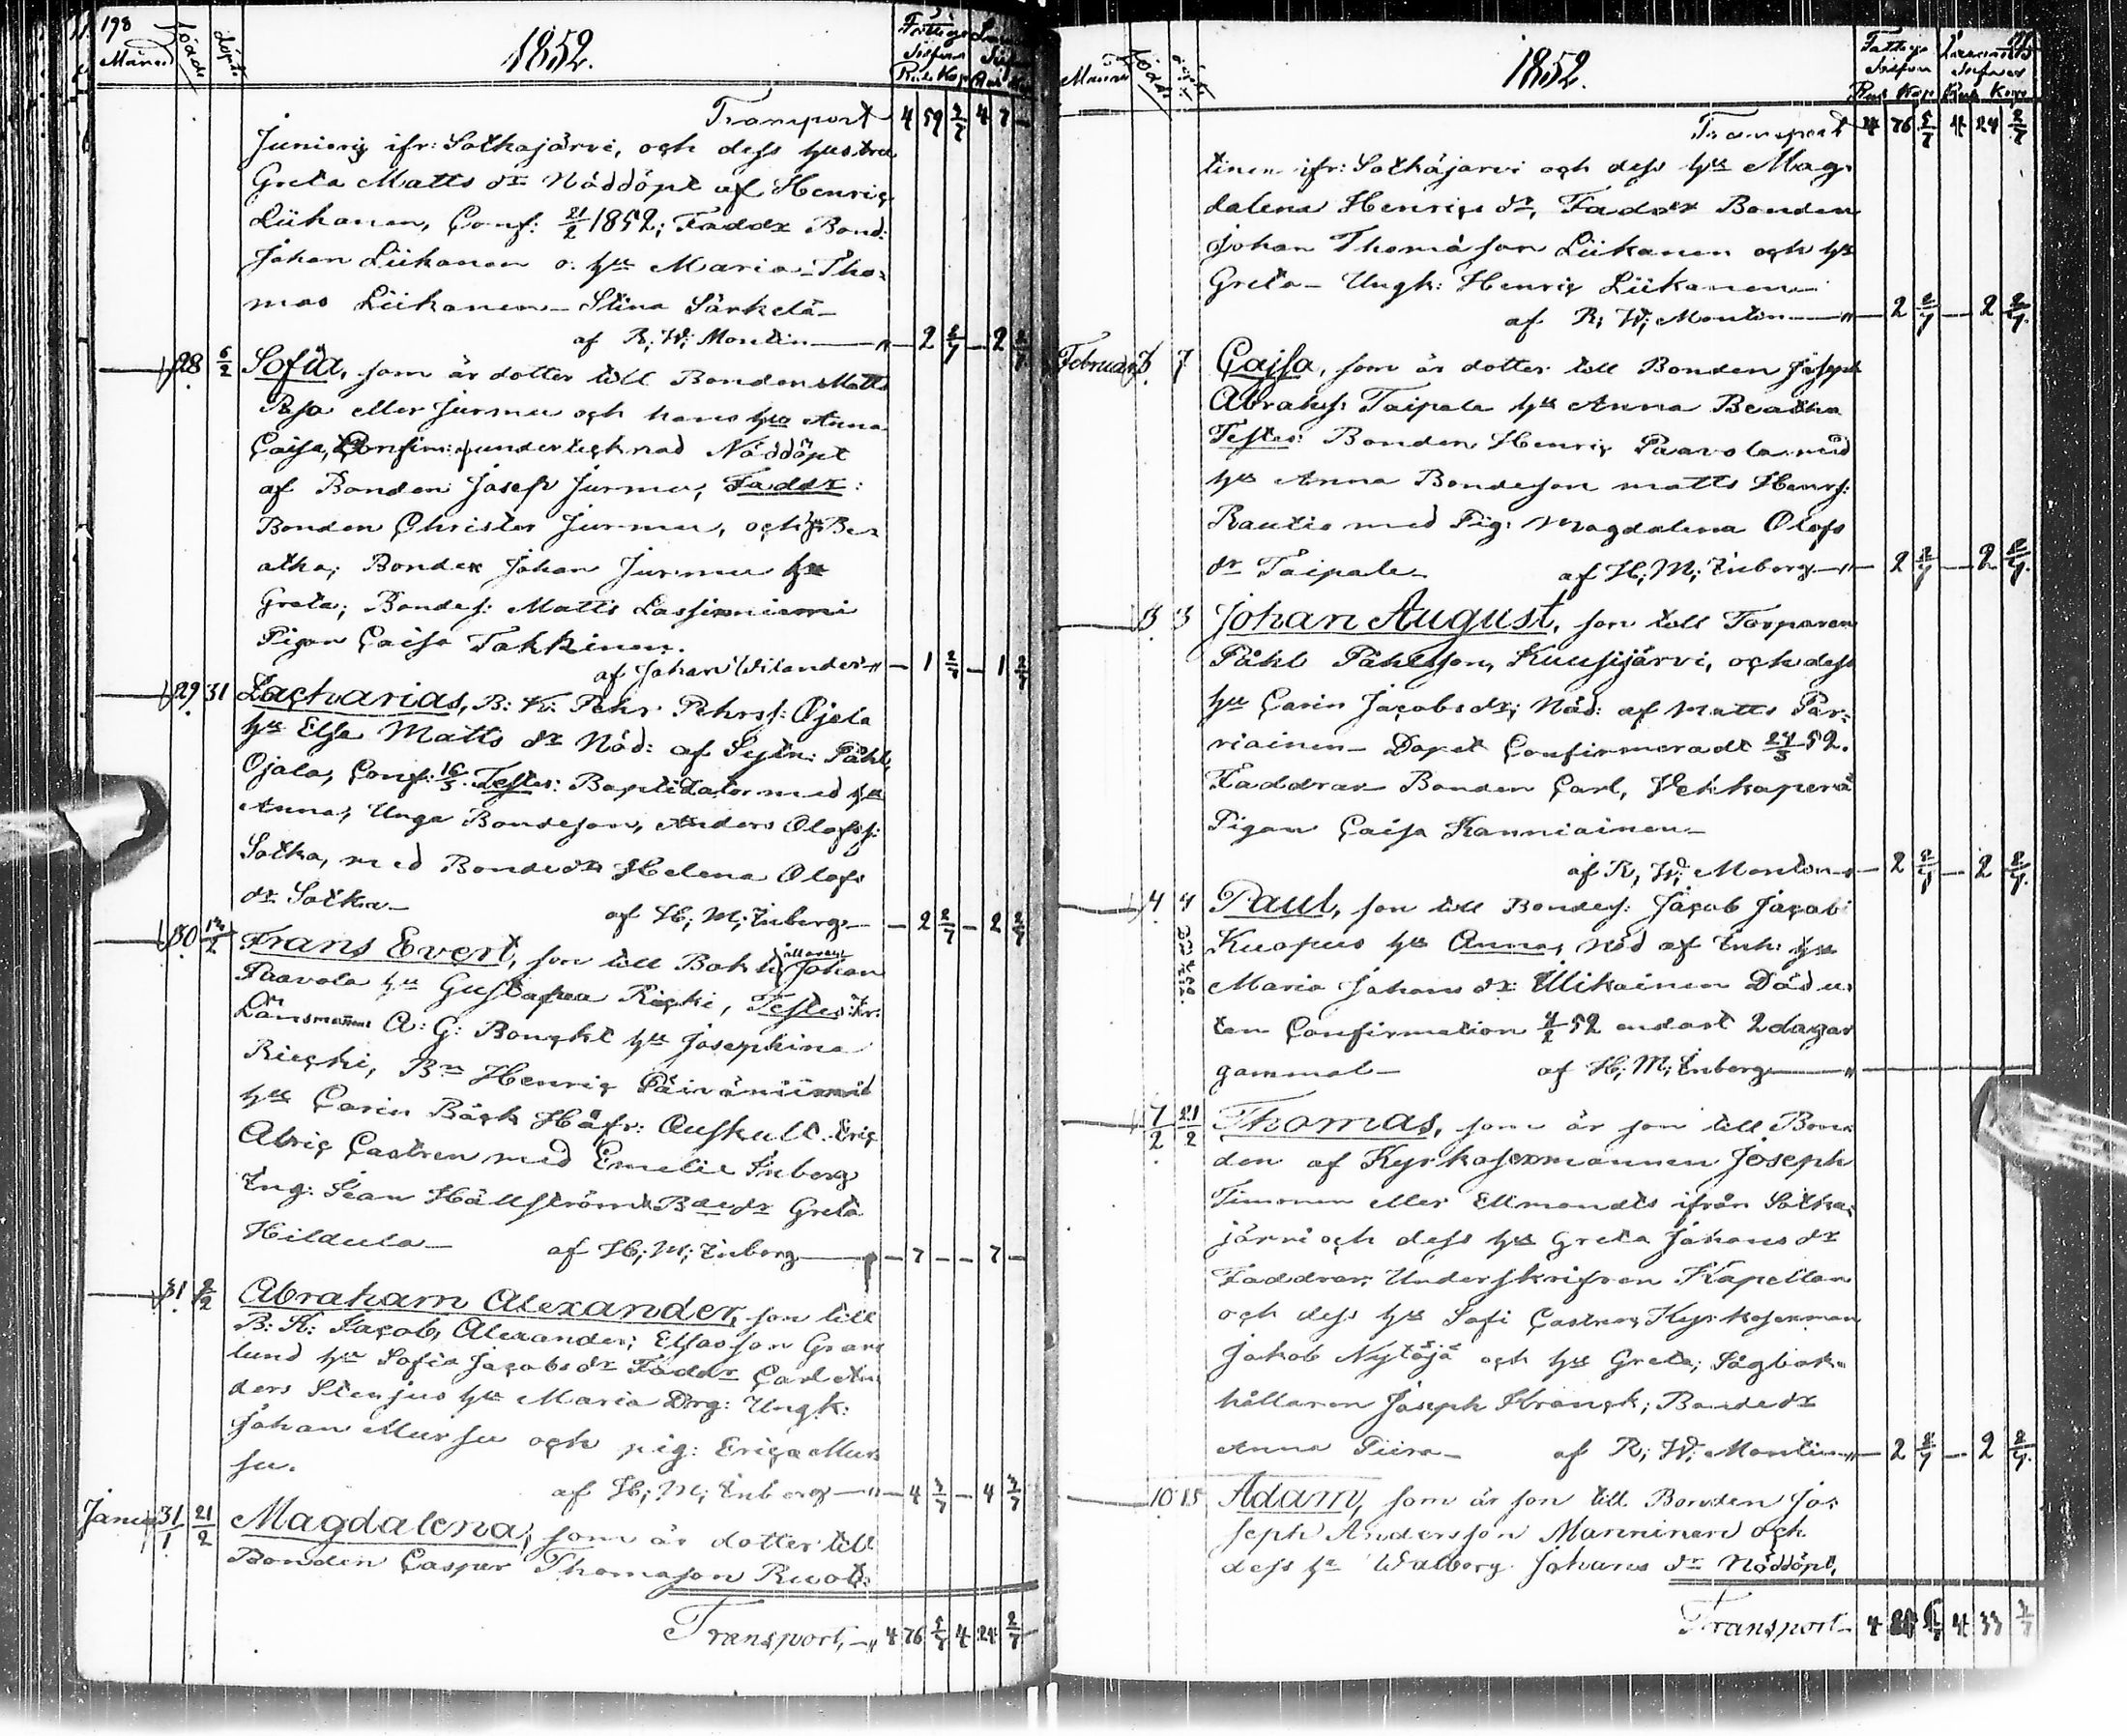 198
Månad
Födde
Döpte
1852.
Fattige
Silfver
Rub. Kop.
Transport 4 59 2/7 4 7 –
Junierig ifr: Sotkajärvi, och dess hustru
Greta Matts dr Nöddöpt af Henric
Liikanen, Conf: 21/2 1852; Faddr Bond:
Johan Liikanen o: hu Maria – Tho-
mas Liikanen – Stina Särkelä –
af R; W; Montin — " – 2 2/7 – 2 2/7
28 6/2 Sofia, som är dotter till Bonden Matts
Posa eller Jurmu och hans hu Anna
Caisa, Confirm: undertecknad Nöddöpt
af Bonden Josef Jurmu, Faddr:
Bonden Christer Jurmu, och hu Be-
atha; Bonden Johan Jurmu hu
Greta; Bondes: Matts Lassiniemi
Pigan Caisa Takkinen.
af Johan Wilander " – 1 2/7 – 1 2/7
29 31 Zacharias, B: K: Pehr Pehrss: Ojala
hu Elsa Matts dr Nöd: af Sytn: Påhl
Ojala, Conf: 16/5. Testes: Baptisator med hu
Anna, Unga Bondeson, Anders Olofss:
Sotka, med Bondedr Helena Olofs
dr Sotka – af H; M; Enberg – – 2 2/7 – 2 2/7
30 12/2 Frans Evert, son till Bokhållaren Johan
Paavola hu Gustafva Riecki, Testes: Kr:
Länsmannen A: G: Bongkt hu Josephina
Riecki, Bn Henric Päiväniemi
hu Carin Bäck Håfr: Auskult. Eric
Alric Castren med Emelie Enberg
Eng: Sean Hällström Bdedr Greta
Hildula – af H; M; Enberg — – 7 – – 7 –
31 2/2 Abraham Alexander, son till
B: K: Jacob, Alexander; Elfasson Gran
lund hu Sofia Jacobs dr Faddr Carl An
ders Stenjus hu Maria Drg: Ungk:
Johan Mursu och pig: Erica Mur
su.
af H; M; Enberg — " – 4 3/7 – 4 3/7
Janua 31/1 21/2 Magdalena, som är dotter till
Bonden Caspar Thomasson Ruot:
Transport, – " 4 76 5/7 4 24 2/7
Månad
Födde
1852.
Fattige
Silfver
Rub Kop Rub Kop
Transport 4 76 5/7 4 24 2/7
tinen ifr: Sotkajärvi och dess hu Mag-
dalena Henrics dr, Faddr Bonden
Johan Thomasson Liikanen och hu
Greta – Ungk: Henric Liikanen –
af R; W; Montin — " – 2 2/7 – 2 2/7
Februari 3 7 Cajsa, som är dotter till Bonden Joseph
Abrahs: Taipale hu Anna Beatha
Testes: Bonden Henric Paavola med
hu Anna Bondeson Matts Henrs:
Rautio med Pig: Magdalena Olofs
dr Taipale – af H; M; Enberg – " – 2 2/7 – 2 2/7
3 3 Johan August, son till Torparen
Påhl Påhlsson, Kuusijärvi, och dess
hu Carin Jacobs dr; Nöd: af Matts Par-
riainen – Dopet Confirmeradt 24/3 52.
Faddrar Bonden Carl, Vekkaperä
Pigan Caisa Kanniainen –
af R, W; Montin – " – 2 2/7 – 2 2/7
4 4 Paul, son till Bondes: Jacob Jacobs
Kuopus hu Anna, Nöd af Enk: hu
Maria Johans dr: Ulikainen Död u-
tan Confirmation 4/2 52 endast 2 dagar
gammal – af H; M; Enberg — "
7/2 21/2 Thomas, som är son till Bon-
den af Kyrkosexmannen Joseph
Timonen eller Ellmandts ifrån Sotka-
järvi och dess hu Greta Johans dr
Faddrar; Underskrifven Kapellan
och dess hu Sofi Castren; Kyrkosexman
Jakob Nytäjä och hu Greta; Sågbok-
hållaren Joseph Kranck; Bondedr
Anna Piira – af R; W; Montin – " – 2 2/7 – 2 2/7
10 15 Adam, som är son till Bonden Jo-
seph Andersson Manninen och
dess hu Walborg Johans dr Nöddöpt,
Transport – 4 4 33 3/7